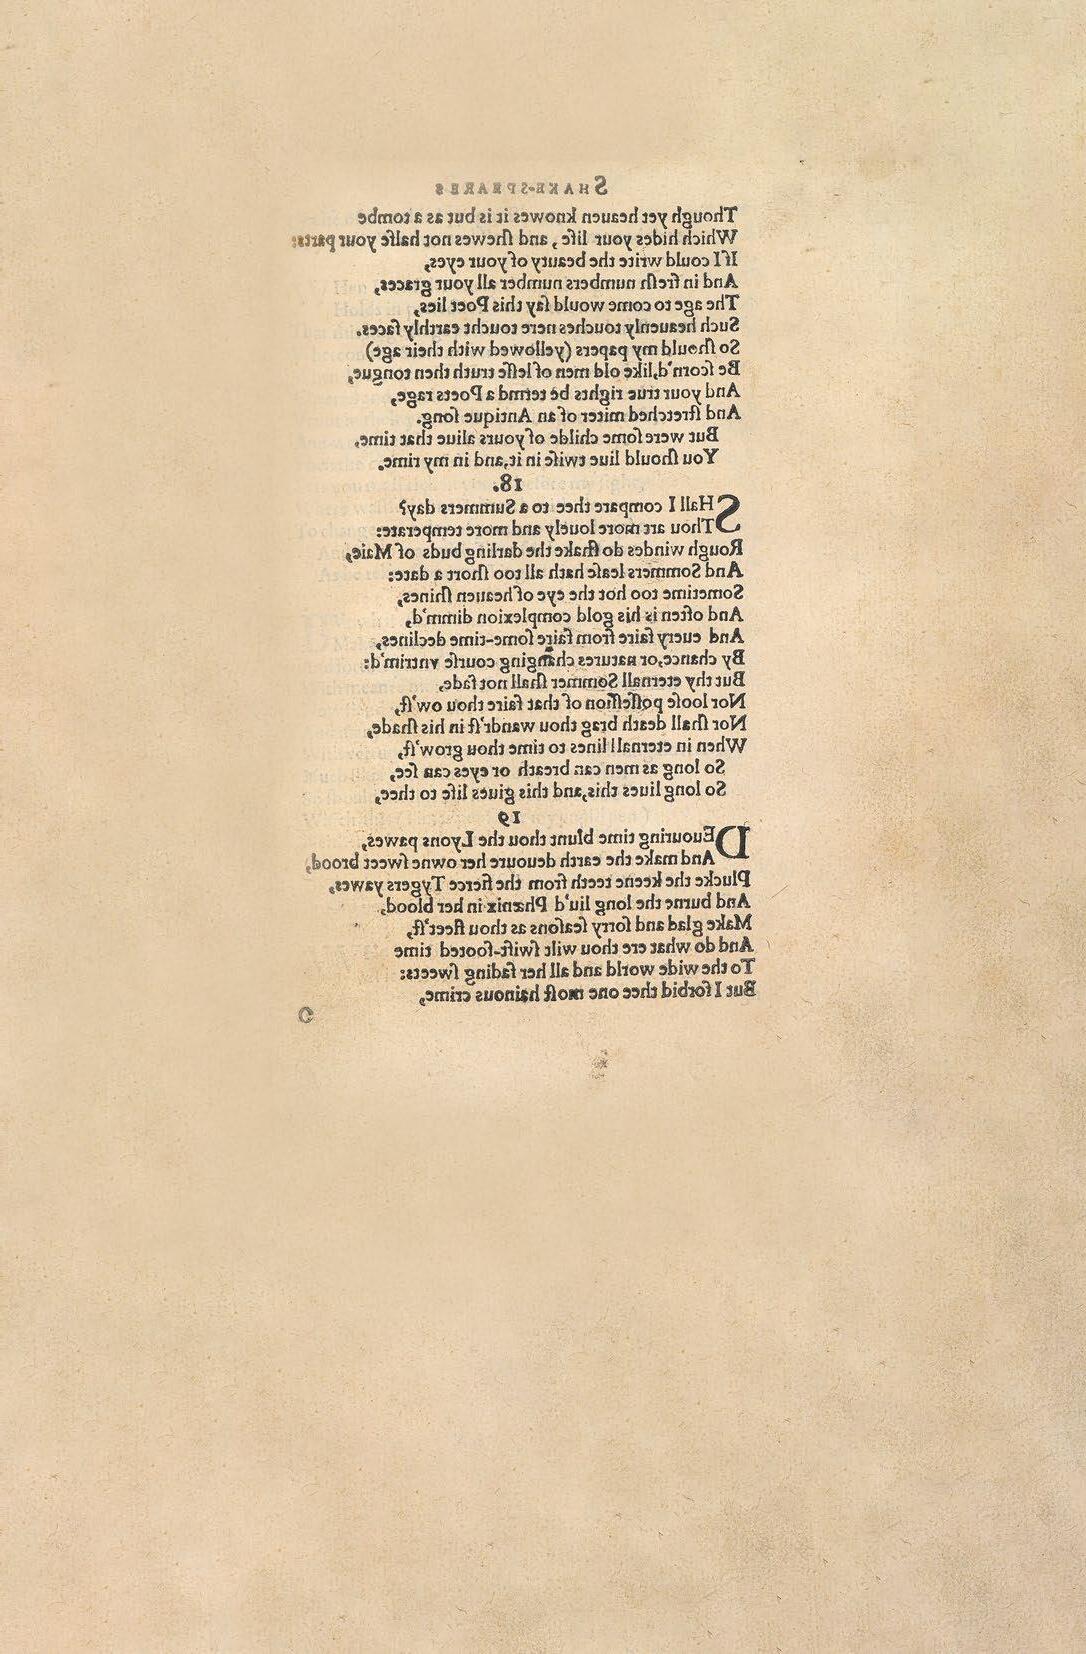 SHAKE-SPEARES
Though yet heauen knowes it is but as a tombe
Which hides your life, and ſhewes not halfe your parts:
If I could write the beauty of your eyes,
And in freſh numbers number all your graces,
The age to come would ſay this Poet lies,
Such heauenly touches nere toucht earthly faces.
So ſhould my papers (yellowed with their age)
Be ſcorn'd,like old men of leſſe truth then tongue,
And your true rights be termd a Poets rage,
And ſtretched miter of an Antique ſong.
But were ſome childe of yours aliue that time,
You ſhould liue twiſe in it,and in my rime.
18.
SHall I compare thee to a Summers day?
Thou art more louely and more temperate:
Rough windes do ſhake the darling buds of Maie,
And Sommers leaſe hath all too ſhort a date:
Sometime too hot the eye of heauen ſhines,
And often is his gold complexion dimm'd,
And euery faire from faire ſome-time declines,
By chance,or natures changing courſe vntrim'd:
But thy eternall Sommer ſhall not fade,
Nor looſe poſſeſſion of that faire thou ow'ſt,
Nor ſhall death brag thou wandr'ſt in his ſhade,
When in eternall lines to time thou grow'ſt,
So long as men can breath or eyes can ſee,
So long liues this,and this giues life to thee,
19
DEuouring time blunt thou the Lyons pawes,
And make the earth deuoure her owne ſweet brood,
Plucke the keene teeth from the fierce Tygers yawes,
And burne the long liu'd Phænix in her blood,
Make glad and ſorry ſeaſons as thou fleet'ſt,
And do what ere thou wilt ſwift-footed time
To the wide world and all her fading ſweets:
But I forbid thee one moſt hainous crime,
O